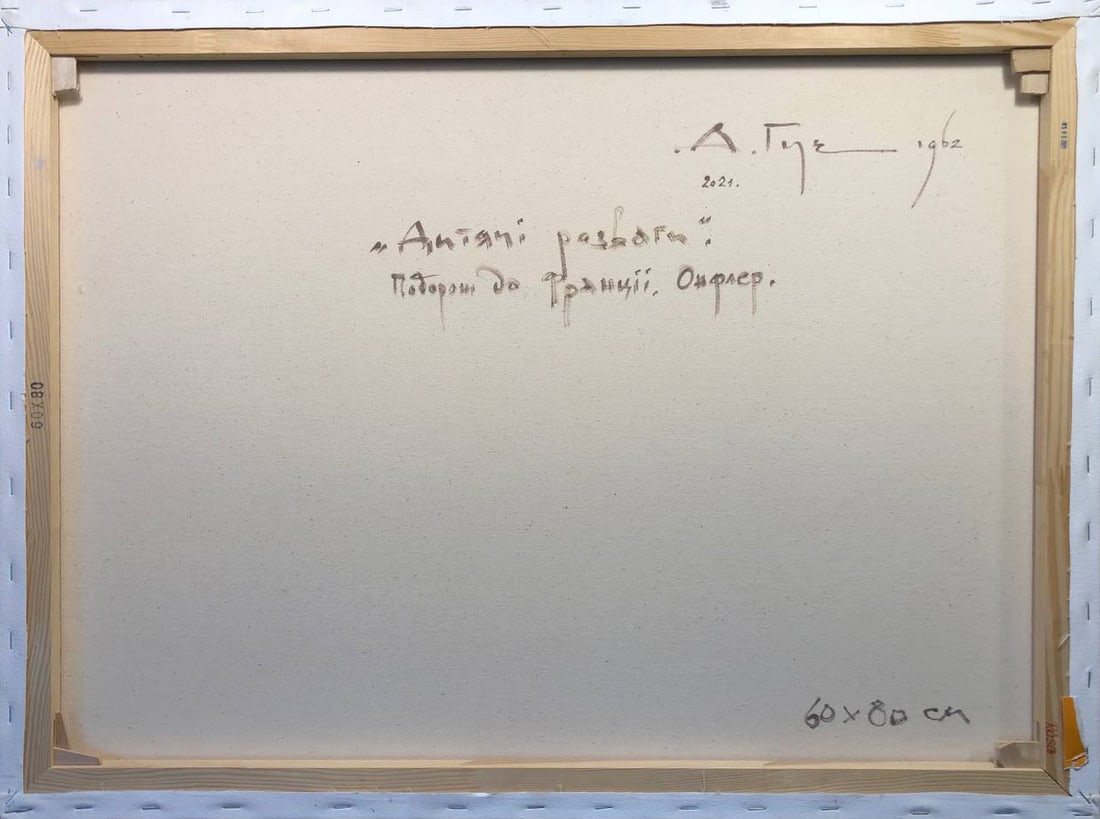 .А.Гук 1962
2021.
„Дитячі розваги".
Подорож до Франції. Онфлер.
60X80
60 x 80 см